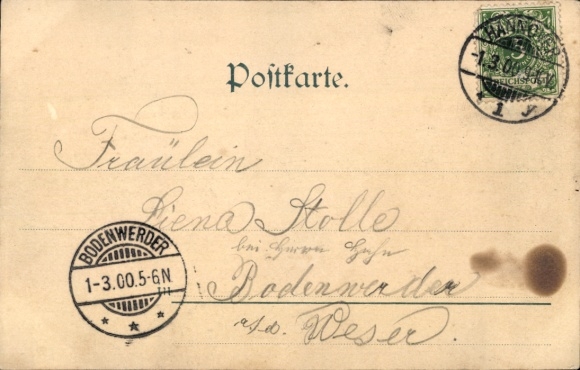 HANNOVER
1.3.00
REICHSPOST
1 y
Postkarte.
Fräulein
Liena Stolle
bei Herrn Hahn
Bodenwerder
a/d. Weser.
BODENWERDER
1-3.00.5-6N